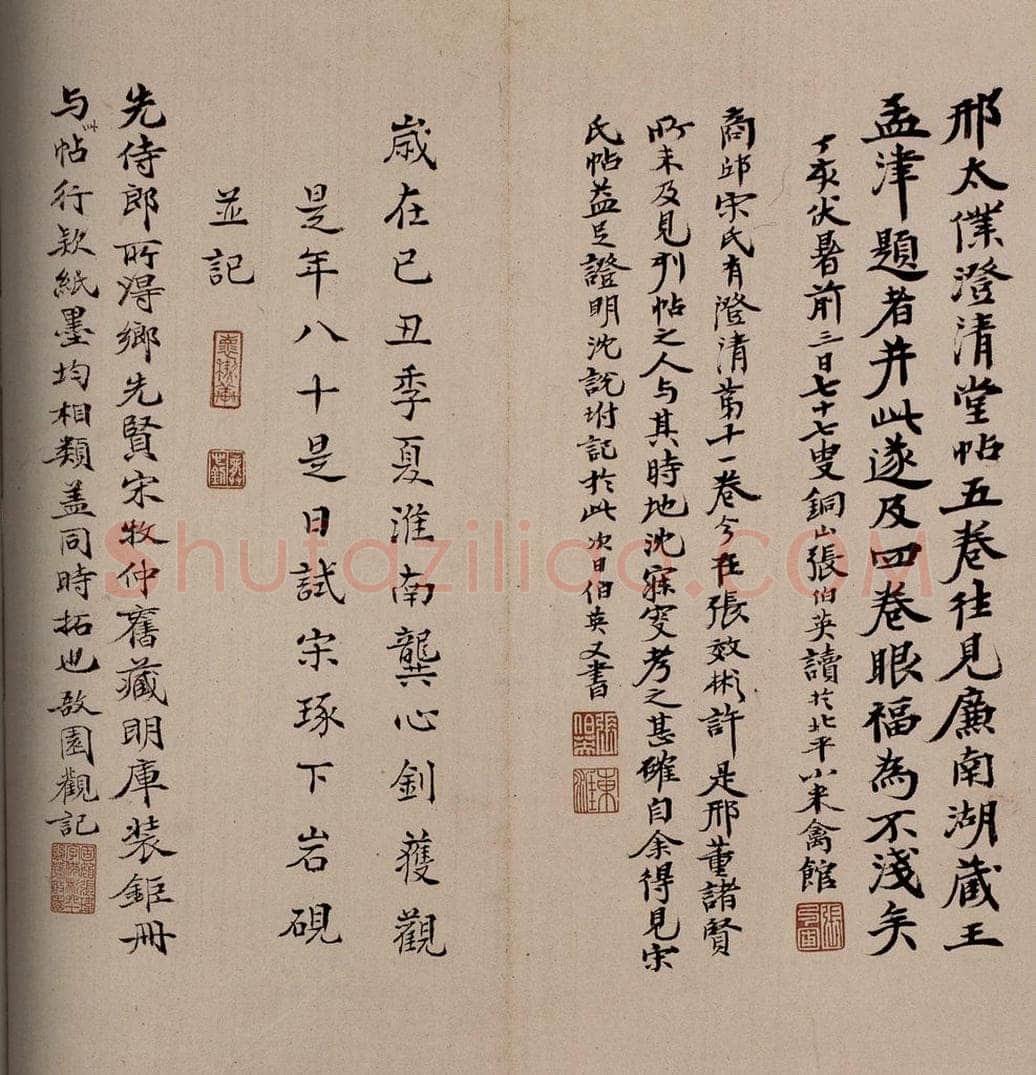 邢太僕澄清堂帖五卷往見廉南湖藏王
孟津題者并此遂及四卷眼福為不淺矣
丁亥伏暑前三日七十七叟銅山張伯英讀於北平小来禽館
商邱宋氏有澄清第十一卷今在張效彬許是邢董諸賢
所未及見刋帖之人与其時地沈寐叟考之甚確自余得見宋
氏帖益足證明沈說坿記於此次日伯英又書
張伯英
歲在己丑季夏淮南龔心釗獲觀
是年八十是日試宋琢下岩硯
並記
先侍郎所得鄉先賢宋牧仲舊藏明庫裝鉅冊
与此帖行款紙墨均相類盖同時拓也敔園觀記
Shufaziliao.COM